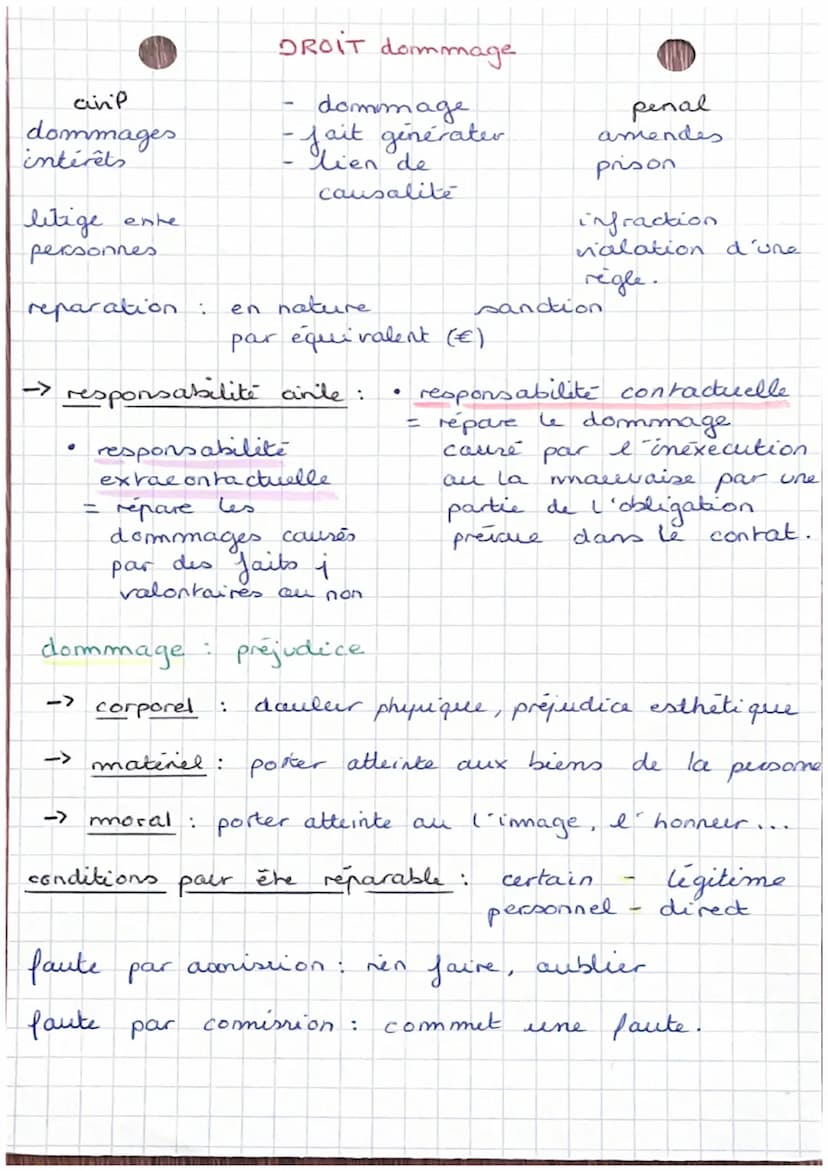 DROIT dommage
civil
dommages
intérêts
litige entre
personnes
- dommage
- fait générater
- lien de
causalité
penal
amendes
prison
infraction
violation d'une
règle.
reparation : en nature
par équivalent (€)
sanction
→ responsabilité civile :
• responsabilité contractuelle
= répare le dommage
causé par l'inéxecution
ou la mauvaise par une
partie de l'obligation
prévue dans le contrat.
• responsabilité
extracontractuelle
= répare les
dommages causés
par des faits j
volontaires ou non
dommage : préjudice
→ corporel : douleur physique, préjudice esthétique
→ matériel : porter atteinte aux biens de la persone
→ moral : porter atteinte au l'immage, l'honneur...
conditions pour être réparable : certain - légitime
personnel - direct
faute par aomission : rien faire, oublier
faute par comission : commet une faute.